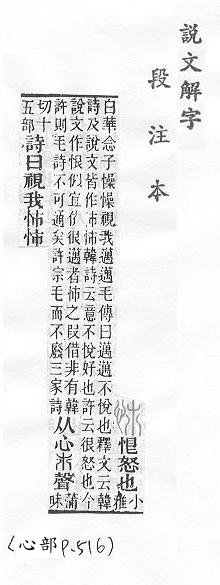 說文解字
段注本
㤄 恨怒也 小雅
白華念子懆懆視我邁邁毛傳曰邁邁不悅也釋文云韓
詩及說文皆作㤄㤄韓詩云意不悅好也許云很怒也今
說文作恨似宜作很邁者㤄之叚借非有韓
許則毛詩不可通矣許宗毛而不廢三家詩
从心巿聲 蒲昧
切十五部 詩曰視我㤄㤄
(心部 p.516)